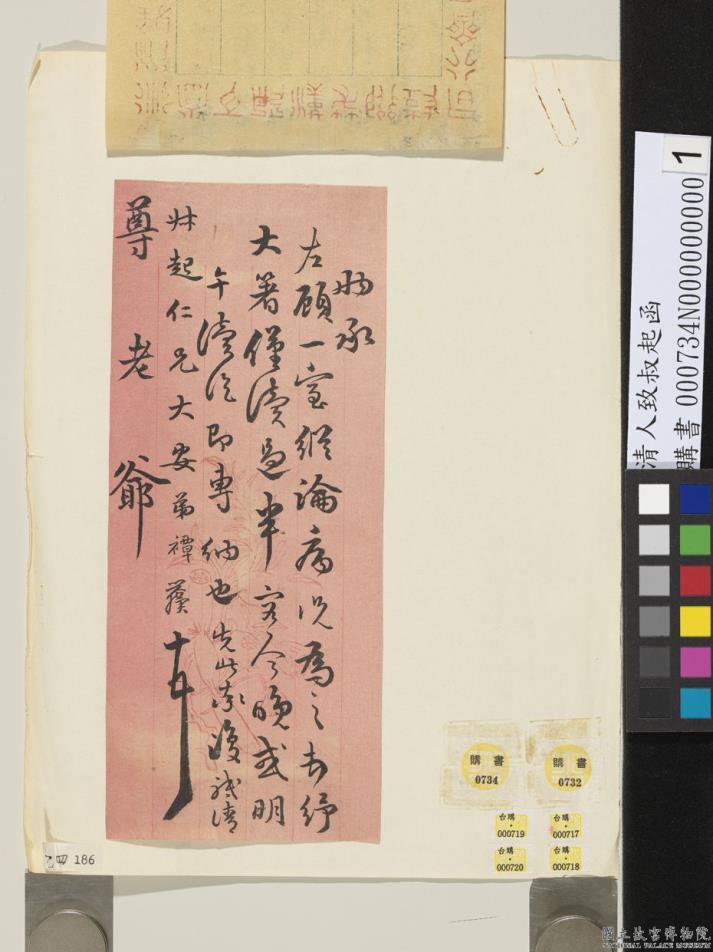 承
左顧一室縱論病況為之大紓
大著僅讀過半容今晚或明
午讀訖即專納也先此奉復敬請
尊
叔起仁兄大安弟禫
老爺
清人致叔起函
購書 000734N000000000
1
購書
0734
購書
0732
台購
000719
台購
000717
台購
000720
台購
000718
四 186
國立故宮博物院
NATIONAL PALACE MUSEUM